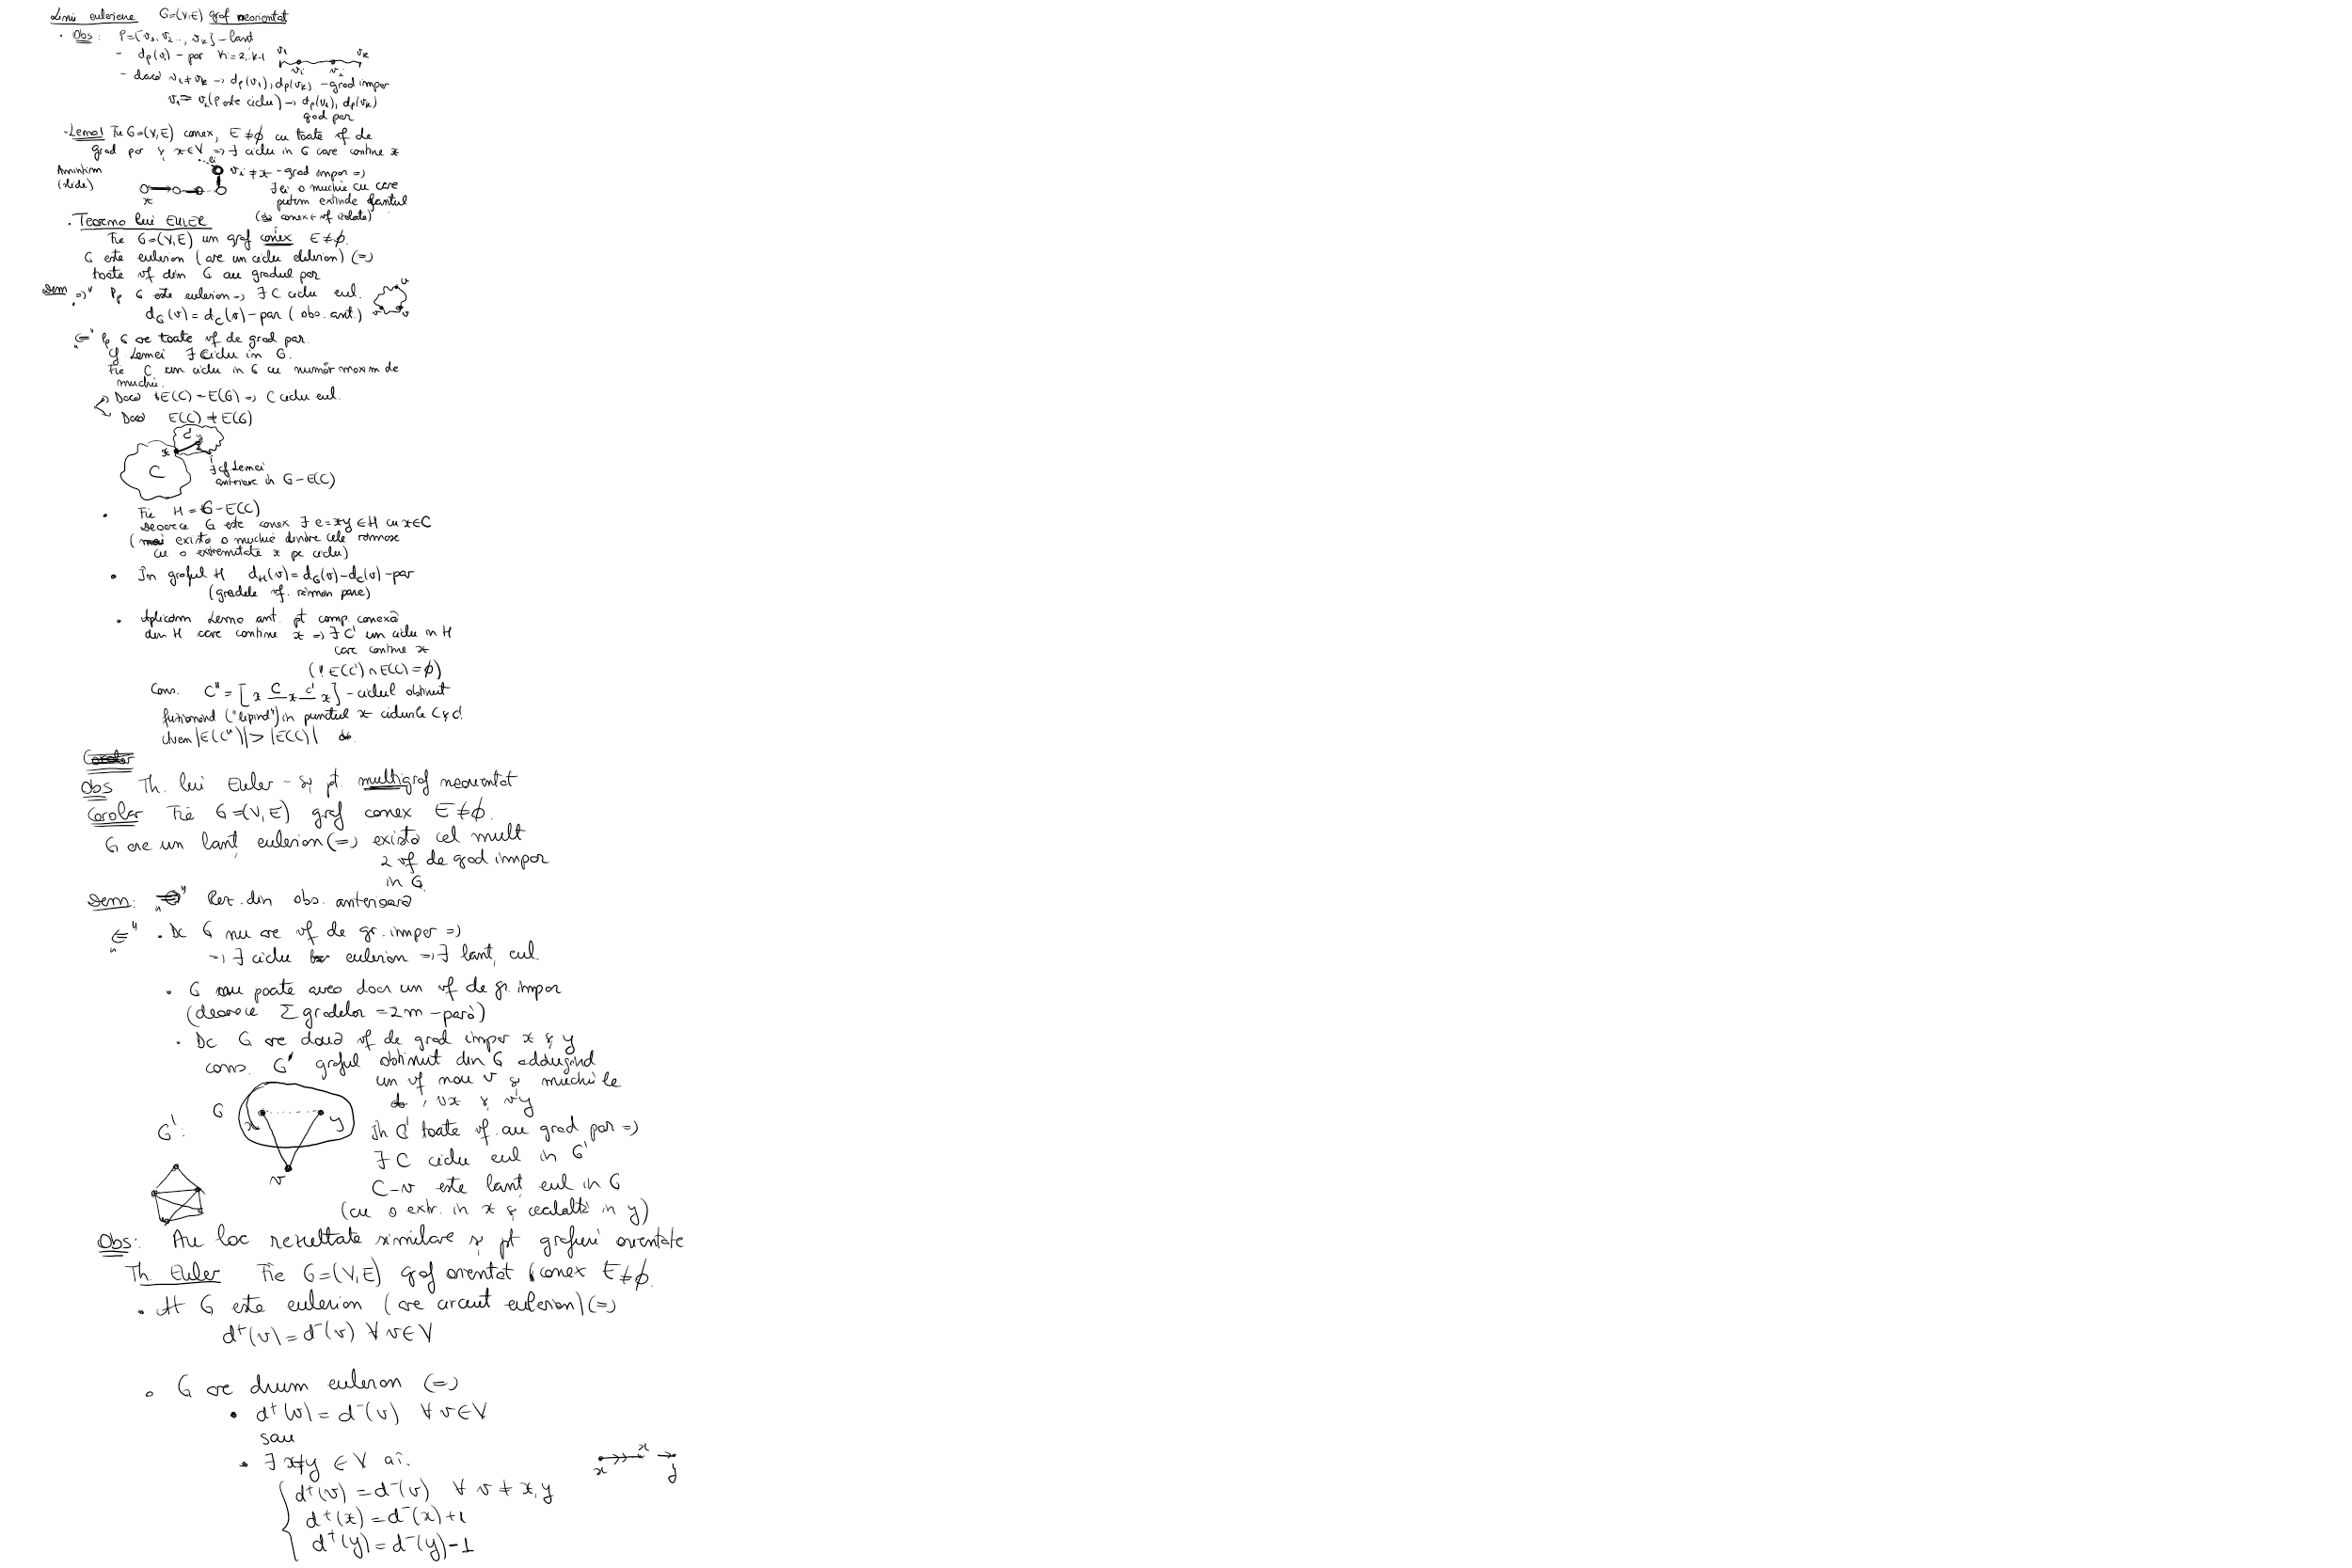 Linii euleriene G=(V,E) graf neorientat
· Obs: P=[v1, v2.., vk] – lanț
- dp(vi) – par ∀i=2,k-1
v1 vk
vi vi
- dacă v1≠vk → dp(v1), dp(vk) – grad impar
v1=vk (P este ciclu) → dp(v1), dp(vk)
grad par
- Lema1 Fie G=(V,E) conex, E≠ϕ cu toate vf de
grad par și x∈V => ∃ ciclu în G care conține x
Amintim
(slide)
x
ei
vi≠x – grad impar =>
∃ei o muchie cu care
putem extinde lanțul
(conex + vf izolate)
· Teorema lui EULER
Fie G=(V,E) un graf conex E≠ϕ.
G este eulerian (are un ciclu eulerian) (=)
toate vf din G au gradul par
Dem „=>" Pp G este eulerian → ∃ C ciclu eul.
v v v
dG(v) = dC(v) – par (obs. ant.)
„<=" Pp G are toate vf de grad par.
Cf Lemei ∃ ciclu în G.
Fie C un ciclu în G cu număr maxim de
muchii.
Dacă E(C) = E(G) → C ciclu eul.
Dacă E(C) ≠ E(G)
C'
x
C
∃ cf Lemei
anterioare în G – E(C)
• Fie H = G – E(C)
Deoarece G este conex ∃ e=xy ∈H cu x∈C
(există o muchie dintre cele rămase
cu o extremitate x pe ciclu)
• În graful H dH(v) = dG(v) – dC(v) – par
(gradele vf. rămân pare)
• Aplicăm Lema ant. pt comp. conexă
din H care conține x => ∃ C' un ciclu în H
care conține x
(! E(C') ∩ E(C) = ϕ)
Cons. C" = [x C x C' x] – ciclul obținut
fuzionând ("lipind") în punctul x ciclurile C și C'.
Avem |E(C")| > |E(C)|
Corolar
Obs Th. lui Euler – și pt. multigraf neorientat
Corolar Fie G=(V,E) graf conex E≠ϕ.
G are un lanț eulerian (=) există cel mult
2 vf de grad impar
în G.
Dem: „=>" Rez. din obs. anterioară
„<=" · Dc G nu are vf de gr. impar =>
→ ∃ ciclu eulerian → ∃ lanț eul.
· G nu poate avea doar un vf de gr. impar
(deoarece Σ gradelor = 2m – pară)
· Dc G are două vf de grad impar x și y
cons. G' graful obținut din G adăugând
un vf nou v și muchiile
vx și vy
G
x y
G':
v
În G' toate vf. au grad par =>
∃ C ciclu eul în G'
C–v este lanț eul în G
(cu o extr. în x și cealaltă în y)
Obs: Au loc rezultate similare și pt grafuri orientate
Th. Euler Fie G=(V,E) graf orientat conex E≠ϕ.
· G este eulerian (are circuit eulerian) (=)
d⁺(v) = d⁻(v) ∀ v∈V
• G are drum eulerian (=)
• d⁺(v) = d⁻(v) ∀ v∈V
sau
• ∃ x≠y ∈ V aî.
x x y
d⁺(v) = d⁻(v) ∀ v ≠ x,y
d⁺(x) = d⁻(x)+1
d⁺(y) = d⁻(y)-1